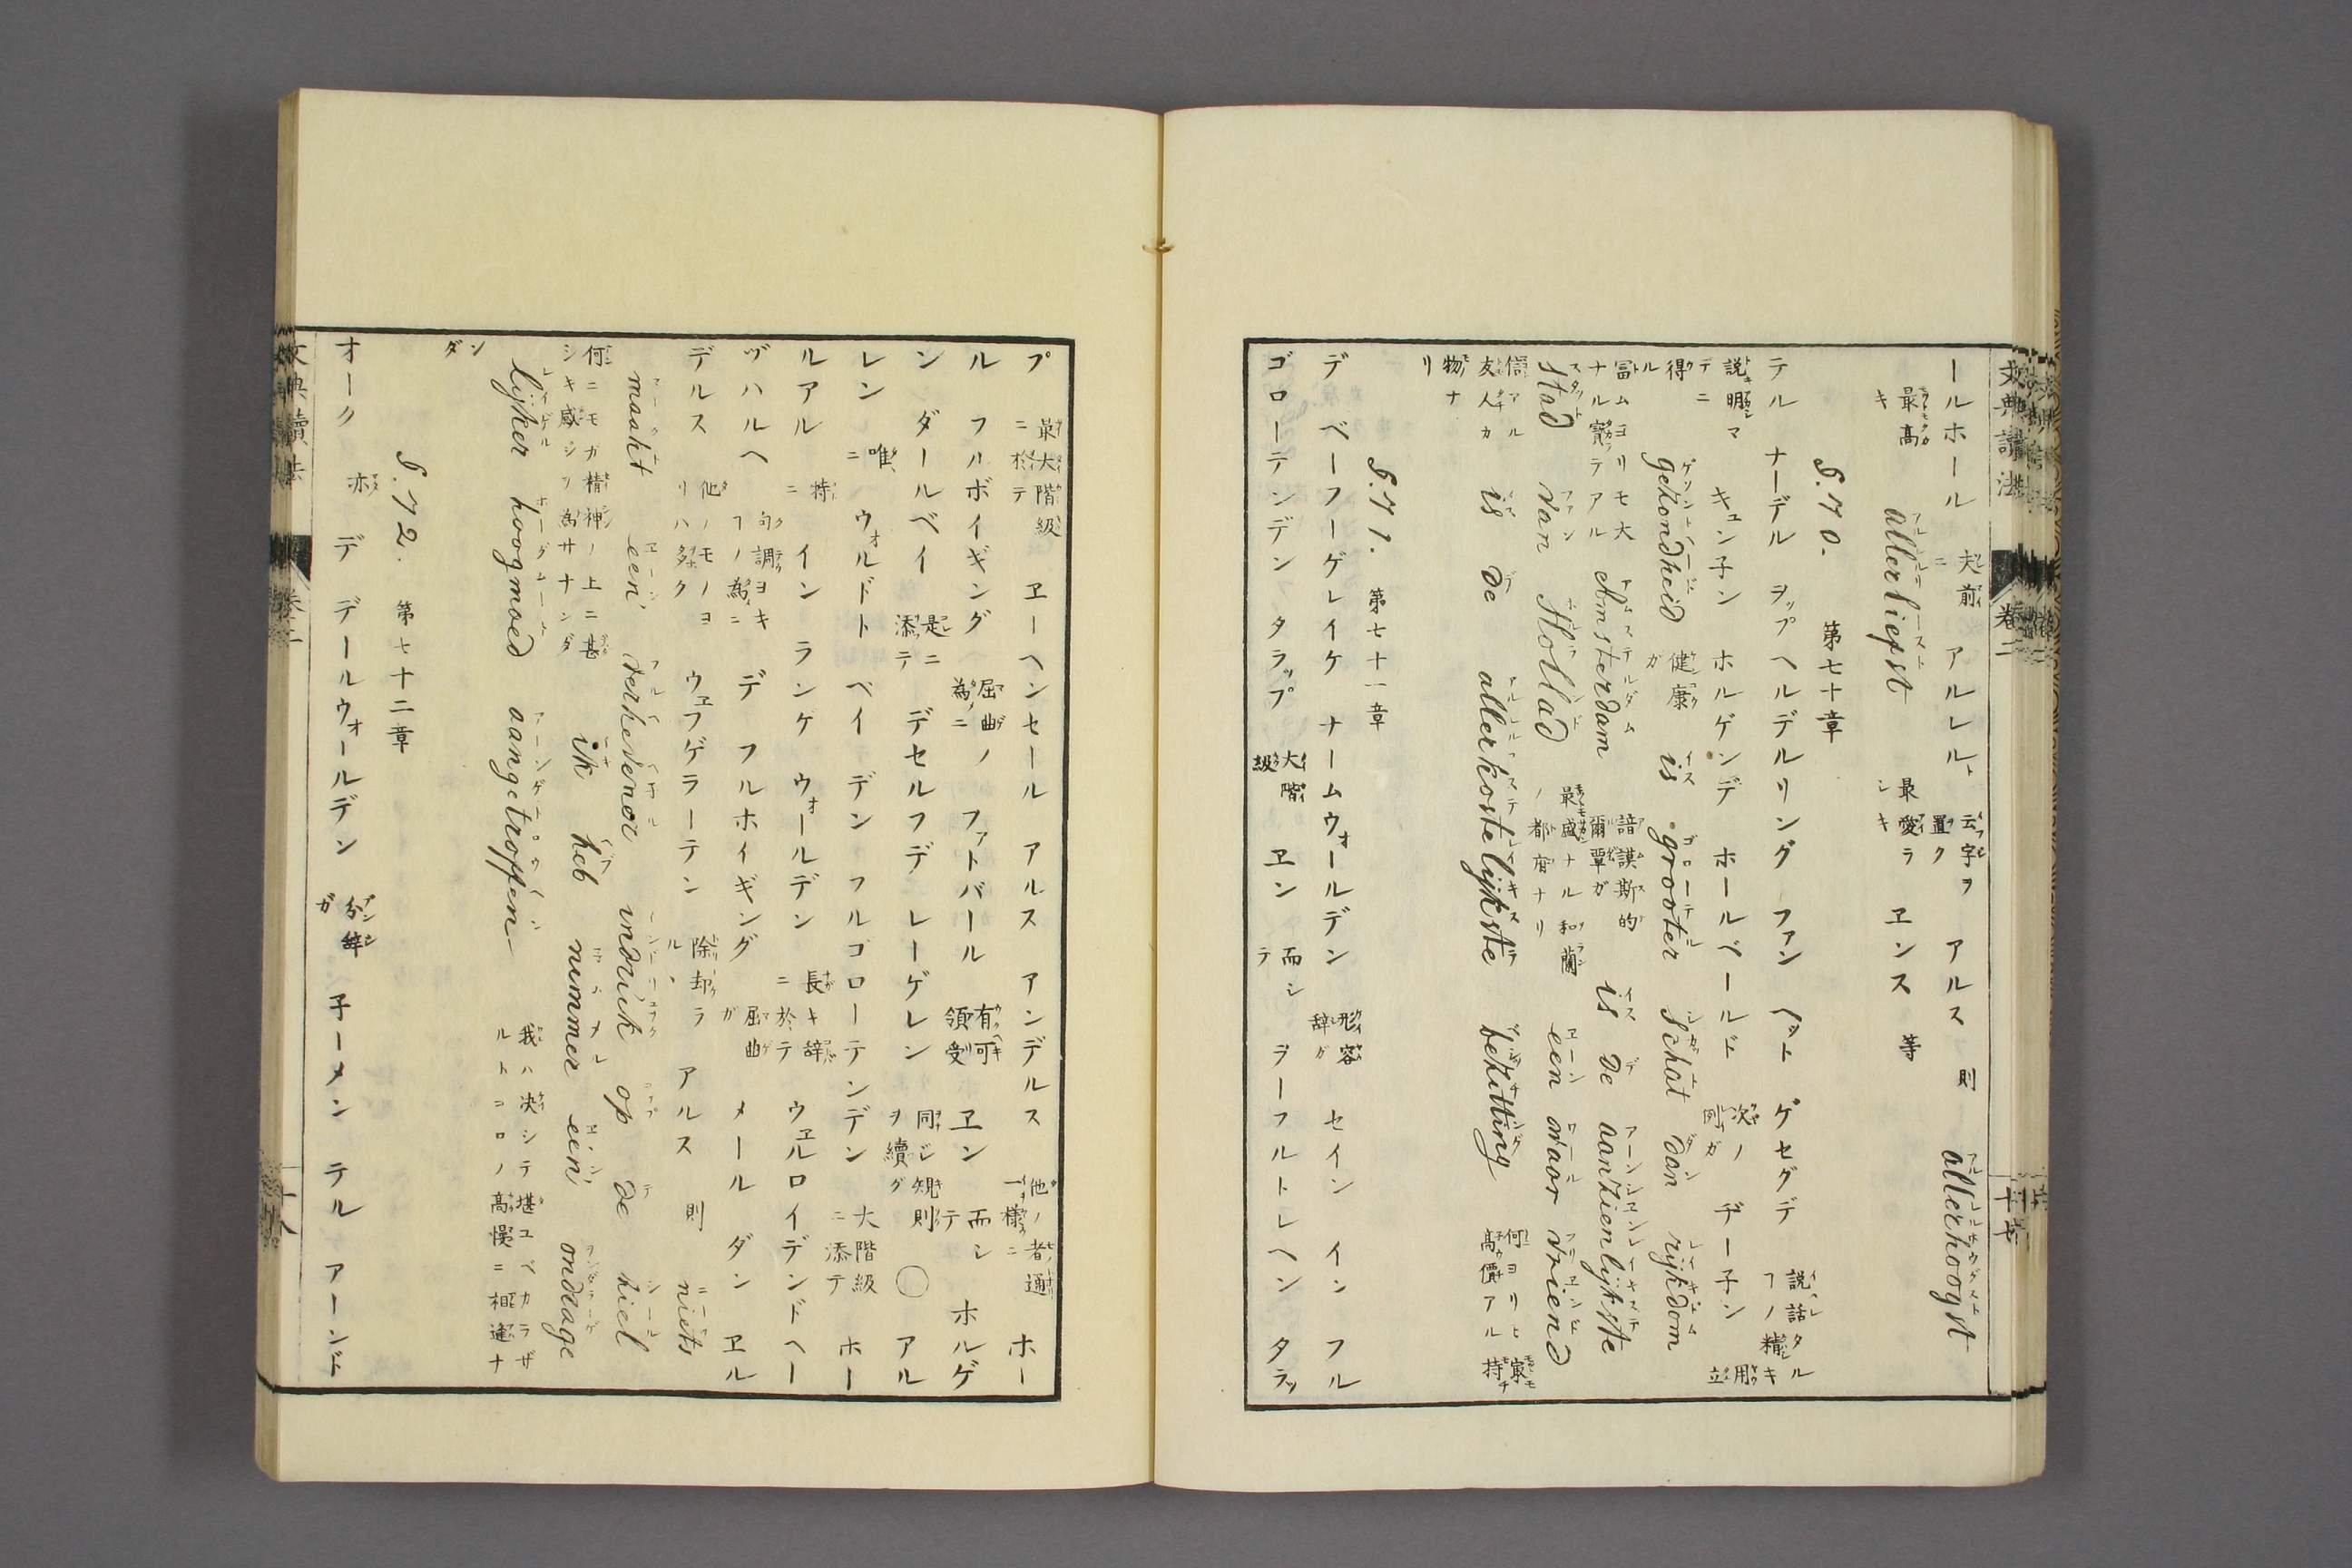 文典讀法 卷二
ールホール 夫ニ前 アルレル、 云字ヲ置ク アルス 則 allerhoogst
最高キ allerliefst 最愛ラシキ ヱンス 等
§.70. 第七十章
テル ナーデル ヲップヘルデルリング ファン ヘット ゲセグデ 説話タルフノ精キ
説明マテニ キュン子ン ホルゲンデ ホールベールド 次ノ例ガ ヂー子ン 用立
得ル gezondheid 健康ガ is grooter schat dan rijkdom
冨ムヨリモ大ナル寳テアル Amsterdam 諳謨斯的爾覃ガ is de aanzienlijkste
stad van Holland 最盛ナル和蘭ノ都府ナリ een waar vriend
信アル友人カ is de allerkostelijkste bezitting 何ヨリヒ髙價アル㝡モ持チ
物ナリ
§.71. 第七十一章
デ ベーフーゲレイケ ナームウォールデン 形容辞ガ セイン イン フル
ゴローテンデン タラップ 大階級 ヱン 而シテ ヲーフルトレヘン タラッ
プ 最大階級ニ於テ ヱーヘンセール アルス アンデルス 他ノ者一様ニ通 ホー
ル フルボイギング 屈曲ノ為ニ ファトバール 有可領受 ヱン 而シテ ホルゲ
ン ダールベイ 是ニ添テ デセルフデ レーゲレン 同シ䂓則ヲ續グ ○ アル
レン 唯ニ ウォルドト ベイ デン フルゴローテンデン 大階級ニ添テ ホー
ルアル 特ニ イン ランゲ ウォールデン 長キ辞ニ於テ ウェルロイデンドヘー
ヅハルヘ 句調ヨキフノ為ニ デ フルホイギング 屈曲ガ メール ダン ヱル
デルス 他ノモノヨリハ多ク ウェフゲラーテン 除却ラル、 アルス 則 niets
maakt een' verhevenor indruk op de ziel
何ニモガ精神ノ上ニ甚シキ感シヲ為サナンダ ik heb nimmer een' ondrage
lijker hoogmoed aangetroffen 我ハ决シテ堪ユベカラザルトコロノ髙慢ニ相逢ナ
ンダ
§.72. 第七十二章
オーク 亦 デ デールウォールデン 分辞ガ 子ーメン テル アーンド
文典讀法 卷二